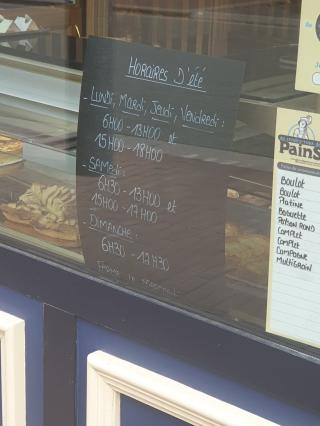 Horaires D'été
- Lundi, Mardi, Jeudi, Vendredi :
6H00 - 13H00 et
15H00 - 19H00
- SAMEDI :
6H30 - 13H00 et
15H00 - 17H00
- DIMANCHE :
6H30 - 12H30
PainS
Boulot
Boulot
Platine
Baguette
POTION ROND
Complet
Complet
Campagne
MULTIGRAIN